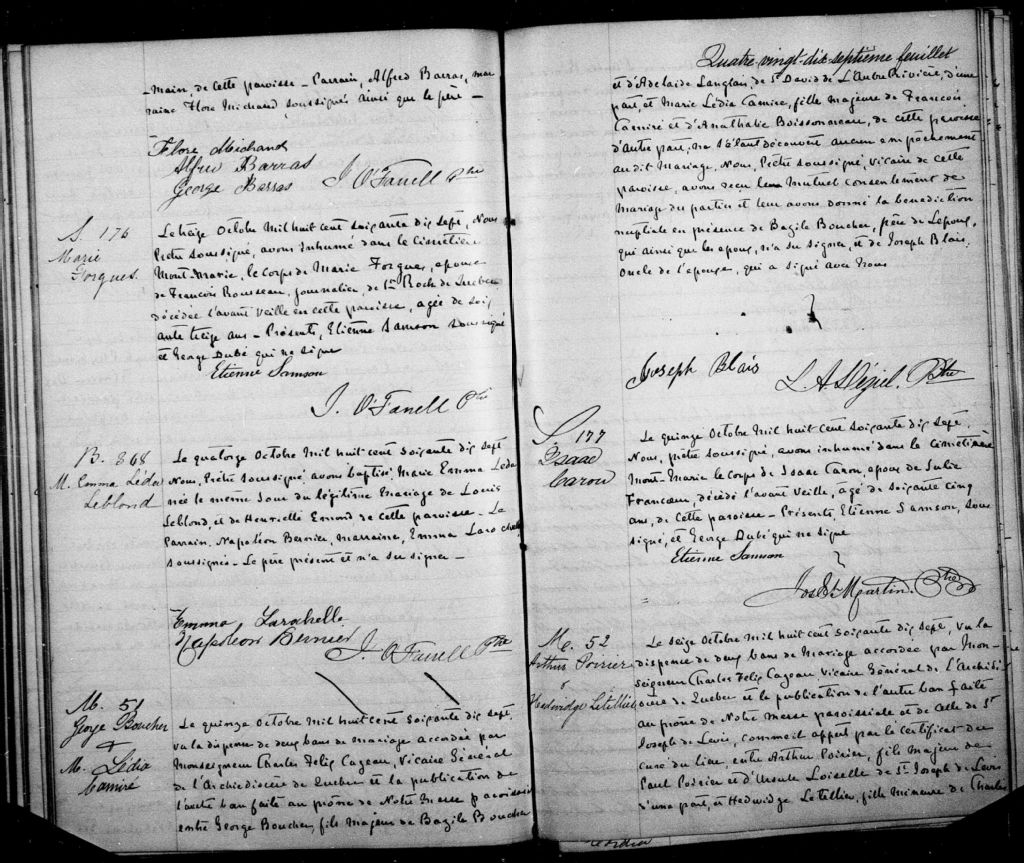 -main, de cette paroisse - Parrain, Alfred Barras, mar
raine Flore Michaud soussignés ainsi que le père -
Flore Michaud
Alfred Barras
George Barras
J. O'Farrell Ptre
S. 176
Marie
Forgues.
Le treize Octobre Mil huit cent soixante dix sept, Nous
Prêtre soussigné, avons inhumé dans le Cimetière
Mont-Marie, le Corps de Marie Forgues, épouse
de François Rousseau, journalier, de St Roch de Quebec
décédée l'avant veille en cette paroisse, agée de soix
ante treize ans - Présents, Etienne Samson soussigné
et George Dubé qui ne signe
Etienne Samson
J. O'Farrell Ptre
B. 368
M. Emma Léda
Leblond
Le quatorze Octobre Mil huit cent soixante dix sept
Nous, Prêtre soussigné, avons baptisé Marie Emma Léda
née le même jour du légitime mariage de Louis
Leblond, et de Henriette Emond de cette paroisse - Le
Parrain, Napoléon Bernier, marraine, Emma Larochelle
soussignés - Le père présent et n'a su signer -
Emma Larochelle
Napoléon Bernier
J. O'Farrell Ptre
M. 51
George Boucher
+
M. Lédia
Camiré
Le quinze Octobre Mil huit cent soixante dix sept
vu la dispense de deux bans de mariage accordée par
Monseigneur Charles Felix Cazeau, Vicaire Général
de l'Archidiocèse de Quebec et la publication de
l'autre ban faite au prône de Notre Messe paroissiale
entre George Boucher, fils Majeur de Bazile Boucher
Quatre-vingt-dix-septième feuillet
et d'Adelaide Langlais, de St David de L'Aube Rivière, d'une
part, et Marie Lédia Camire, fille majeure de François
Camiré et d'Anathalie Boissonneau, de cette paroisse
d'autre part, ne s'étant découvert aucun empêchement
au dit Mariage, Nous, Prêtre soussigné, Vicaire de cette
paroisse, avons reçu leur Mutuel consentement de
Mariage des parties et leur avons donné la benediction
nuptiale en présence de Bazile Boucher, père de l'epoux,
qui ainsi que les epoux, n'a su signer, et de Joseph Blais,
Oncle de l'epouse, qui a signé avec Nous
Joseph Blais
L. A. Déziel. Ptre
S. 177
Isaac
Caron
Le quinze Octobre Mil huit cent soixante dix sept
Nous, prêtre soussigné, avons inhumé dans le Cimetière
Mont-Marie le Corps de Isaac Caron, epoux de Julie
Francoeur, décédé l'avant veille, âgé de soixante cinq
ans, de Cette paroisse - Présents, Etienne Samson, sous
signé, et George Dubé qui ne signe
Etienne Samson
Jos. Et. Martin. Ptre
M. 52
Arthur Poirier
&
Hedwidge Letellier
Le seize Octobre Mil huit cent soixante dix sept, vu la
dispense de deux bans de Mariage accordée par Mon-
seigneur Charles Felix Cazeau Vicaire Général de L'Archidi
ocèse de Quebec et la publication de l'autre ban faite
au prône de Notre Messe paroissiale et de celle de St
Joseph de Levis, comme il appert par le certificat du
curé du lieu, entre Arthur Poirier, fils Majeur de
Paul Poirier et d'Ursule Loiselle de St. Joseph de Levis
d'une part, et Hedwidge Letellier, fille Mineure de Charles